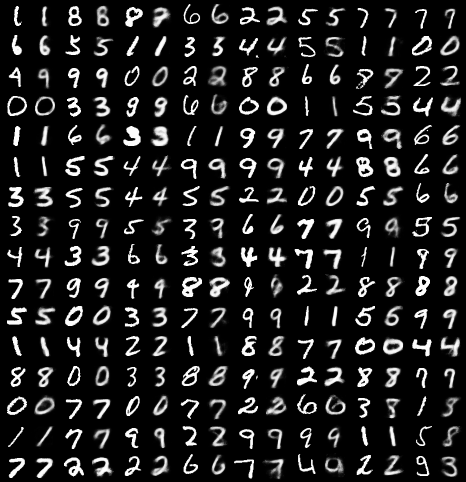 1 1 8 8 8 2 6 6 2 2 5 5 7 7 7 7
6 6 5 5 1 1 3 3 4 4 5 5 1 1 0 0
4 9 9 9 0 0 2 2 8 8 6 6 8 8 2 2
0 0 3 3 9 9 6 6 0 0 1 1 5 5 4 4
1 1 6 6 3 3 1 1 9 9 7 7 9 9 6 6
1 1 5 5 4 4 9 9 9 9 4 4 8 8 6 6
3 3 5 5 4 4 5 5 2 2 0 0 5 5 6 6
3 3 9 9 5 5 3 9 6 6 7 7 9 9 5 5
4 4 3 3 6 6 3 3 4 4 7 7 1 1 9 9
7 7 9 9 4 4 8 8 9 9 2 2 8 8 8 8
5 5 0 0 3 3 7 7 9 9 1 1 5 6 9 9
1 1 4 4 2 2 1 1 8 8 7 7 0 0 4 4
8 8 0 0 3 3 8 8 9 9 2 2 8 8 7 7
0 0 7 7 0 0 7 7 2 2 6 6 3 8 1 8
1 1 7 7 9 9 2 2 9 9 9 9 1 1 5 8
7 7 2 2 2 2 6 6 7 7 4 9 2 2 9 3